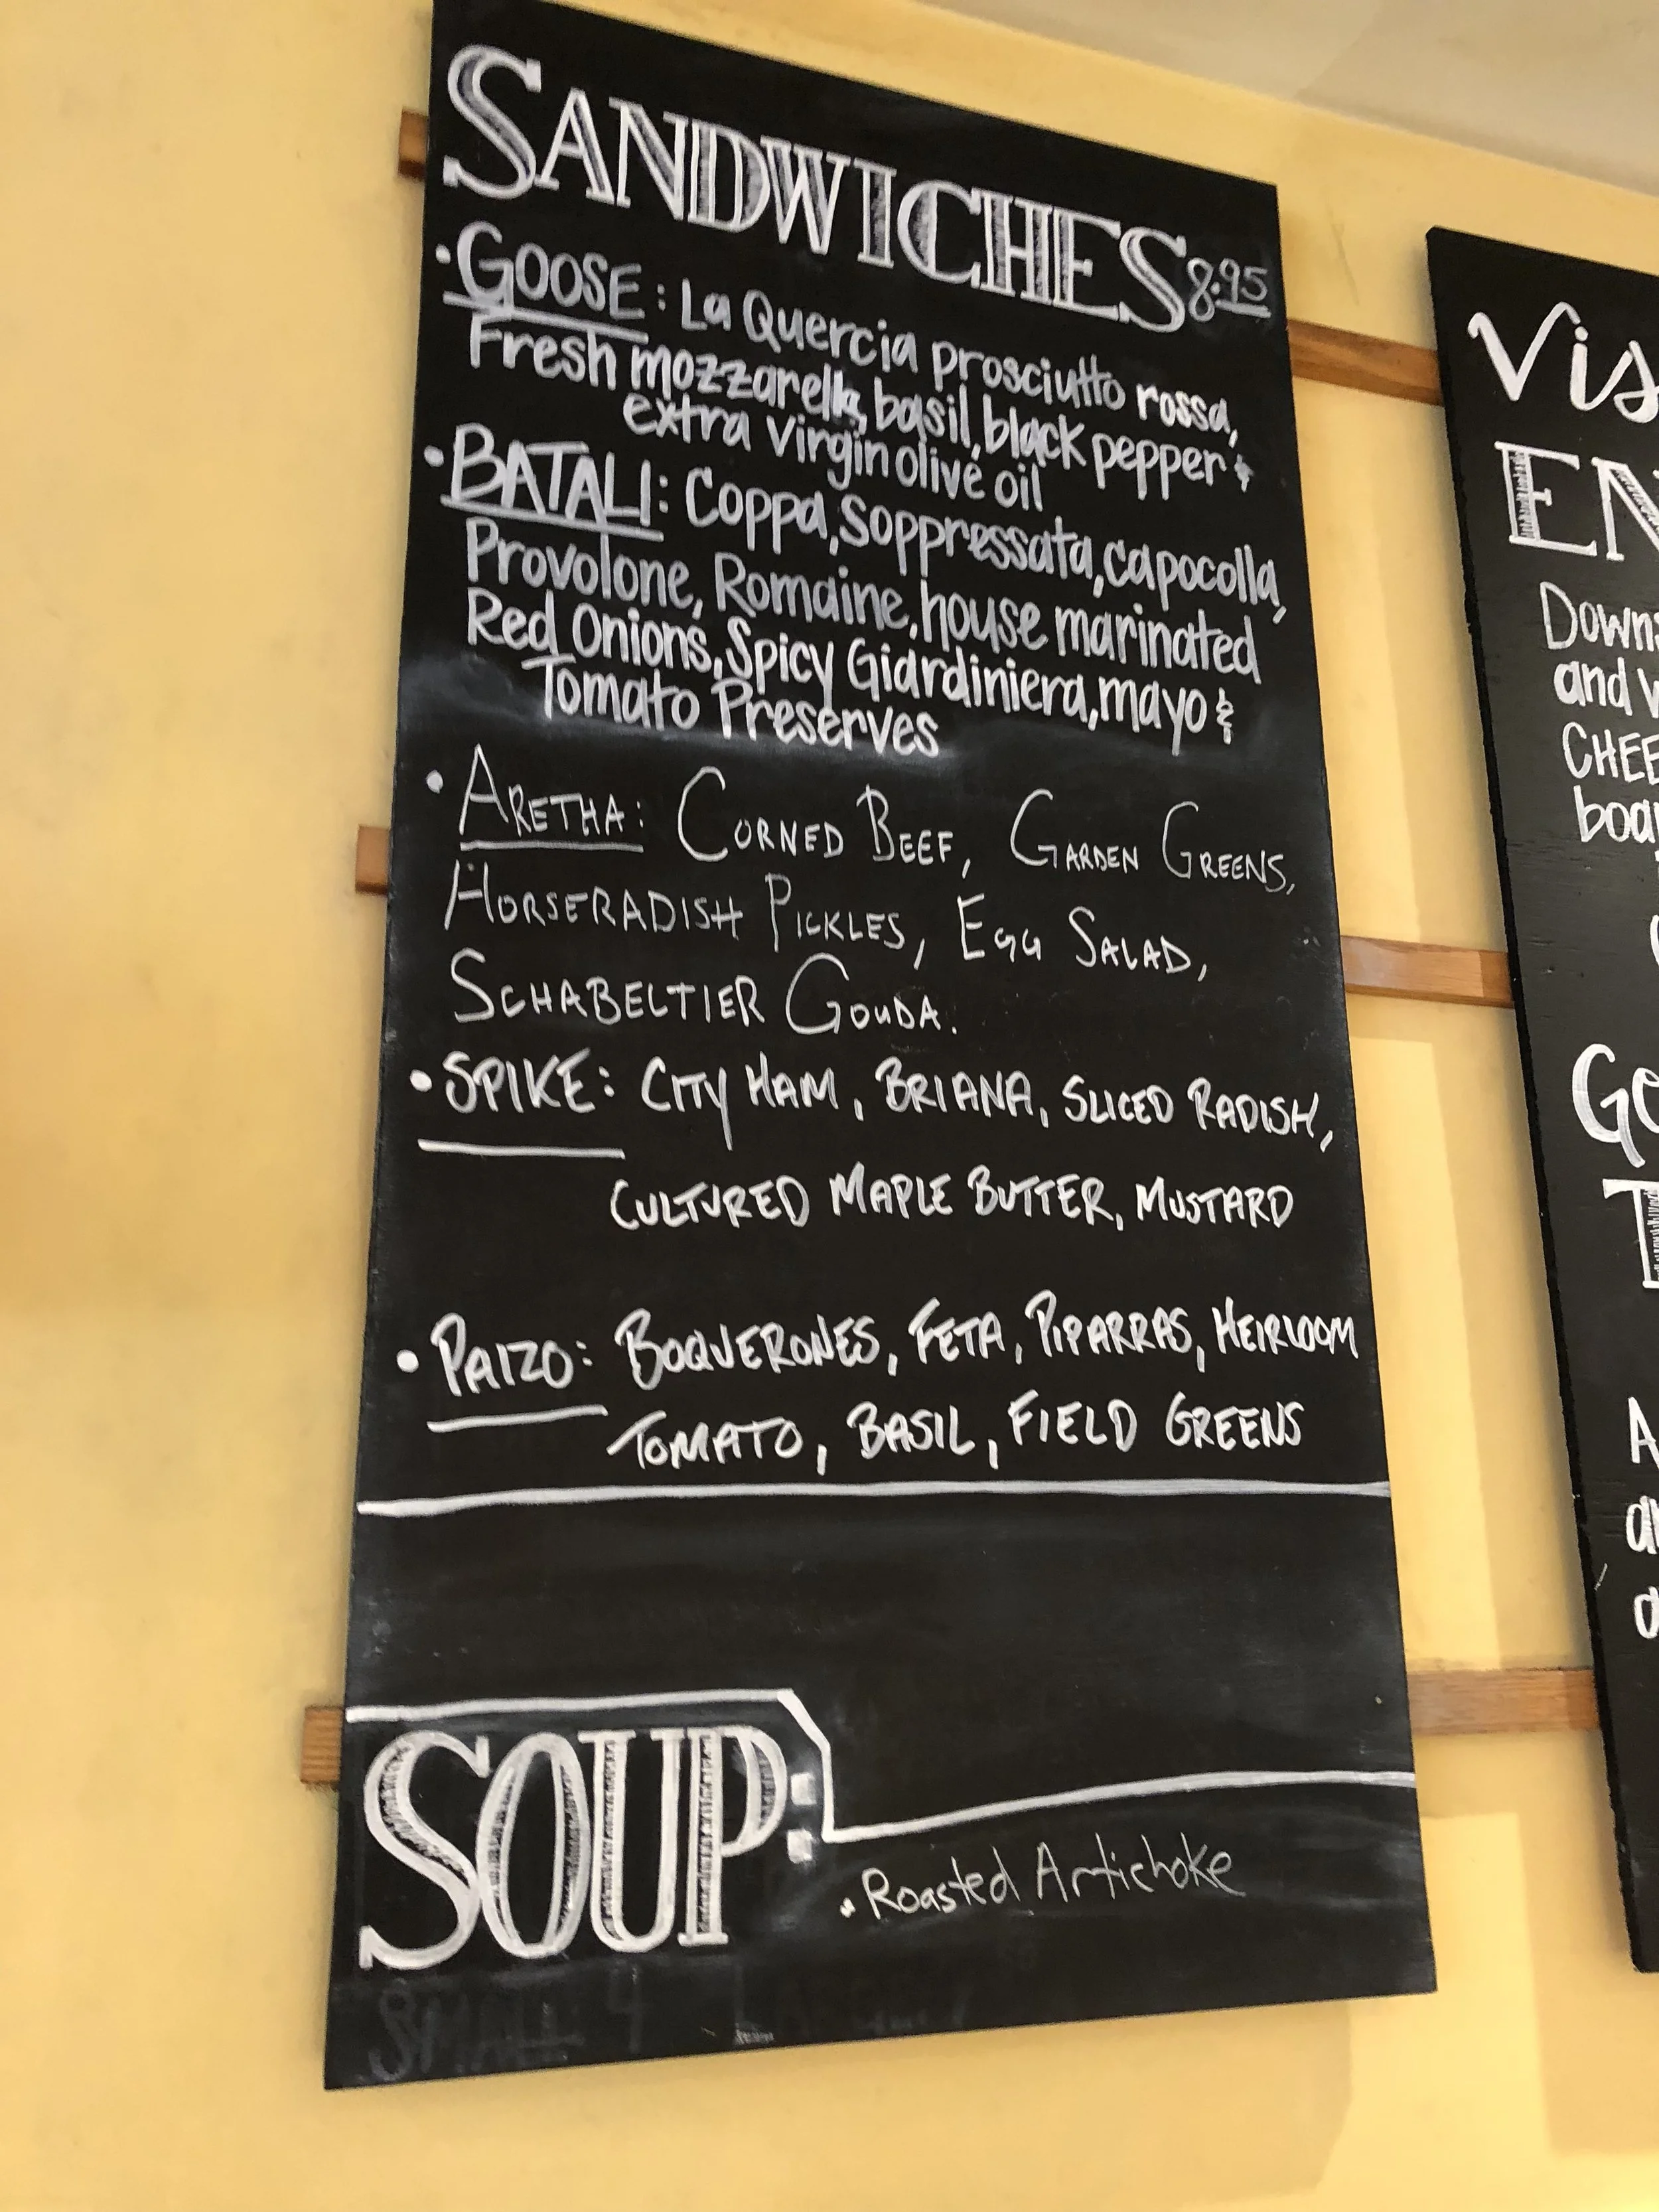 SANDWICHES 8.95
• GOOSE: La Quercia prosciutto rossa,
Fresh mozzarella, basil, black pepper &
extra virgin olive oil
• BATALI: Coppa, Soppressata, capocolla,
Provolone, Romaine, house marinated
Red Onions, Spicy Giardiniera, mayo &
Tomato Preserves
• ARETHA: CORNED BEEF, GARDEN GREENS,
HORSERADISH PICKLES, EGG SALAD,
SCHABELTIER GOUDA.
• SPIKE: CITY HAM, BRIANA, SLICED RADISH,
CULTURED MAPLE BUTTER, MUSTARD
• PAIZO: BOQUERONES, FETA, PIPARRAS, HEIRLOOM
TOMATO, BASIL, FIELD GREENS
SOUP:
• Roasted Artichoke
SMALL 4
Vis
EN
Down
and w
CHEE
boar
Go
T
A